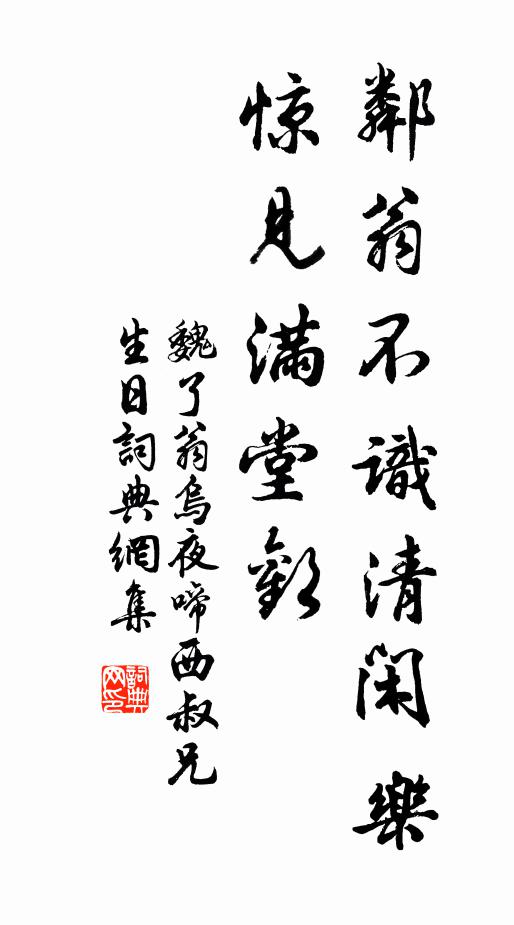 鄰翁不識清閑樂
惊見滿堂歡
魏了翁烏夜啼西叔兄
生日詞典網集
詞典网印